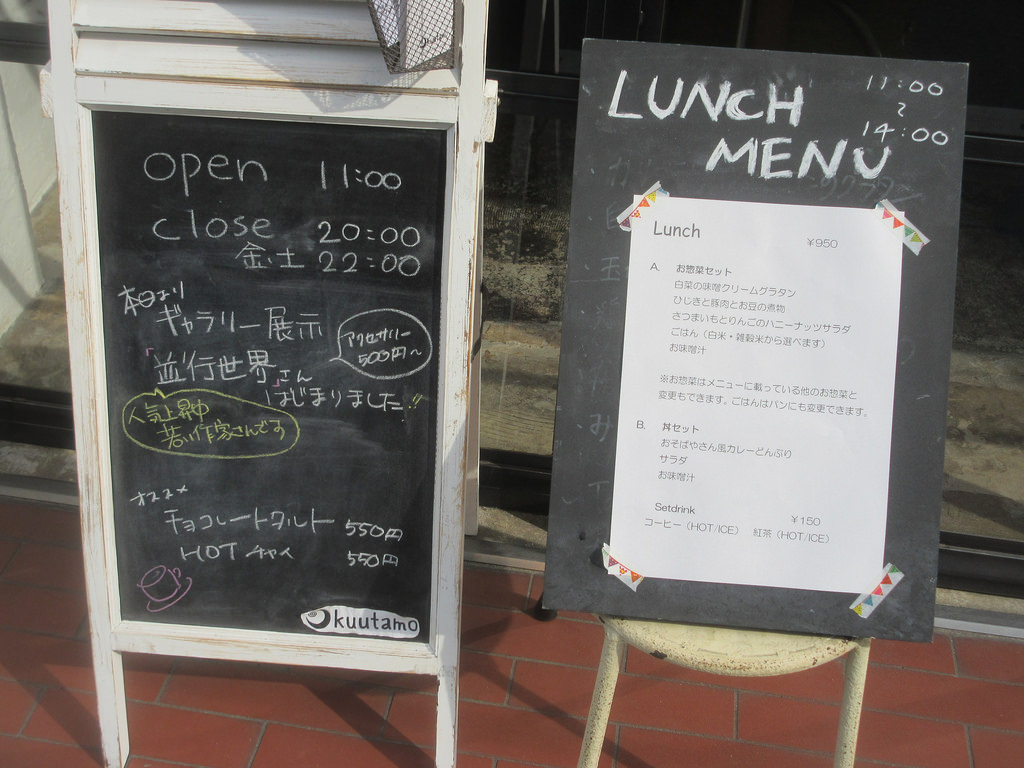 open 11:00
close 20:00
金・土 22:00
本日より
ギャラリー展示
アクセサリー
500円〜
「並行世界」さん
はじまりました!!
人気上昇中
若い作家さんです
オススメ
チョコレートタルト 550円
HOTチャイ 550円
kuutamo
LUNCH
MENU
11:00
〜
14:00
Lunch ¥950
A. お惣菜セット
白菜の味噌クリームグラタン
ひじきと豚肉とお豆の煮物
さつまいもとりんごのハニーナッツサラダ
ごはん（白米・雑穀米から選べます）
お味噌汁
※お惣菜はメニューに載っている他のお惣菜と
変更もできます。ごはんはパンにも変更できます。
B. 丼セット
おそばやさん風カレーどんぶり
サラダ
お味噌汁
Setdrink ¥150
コーヒー（HOT/ICE） 紅茶（HOT/ICE）